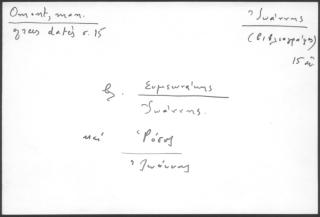 Omont, man.
grecs datés s. 15
Ἰωάννης
(βιβλιογράφος)
15 αἰ
βλ. Συμεωνάκης
Ἰωάννης.
καί Ῥόσος
Ἰωάννης